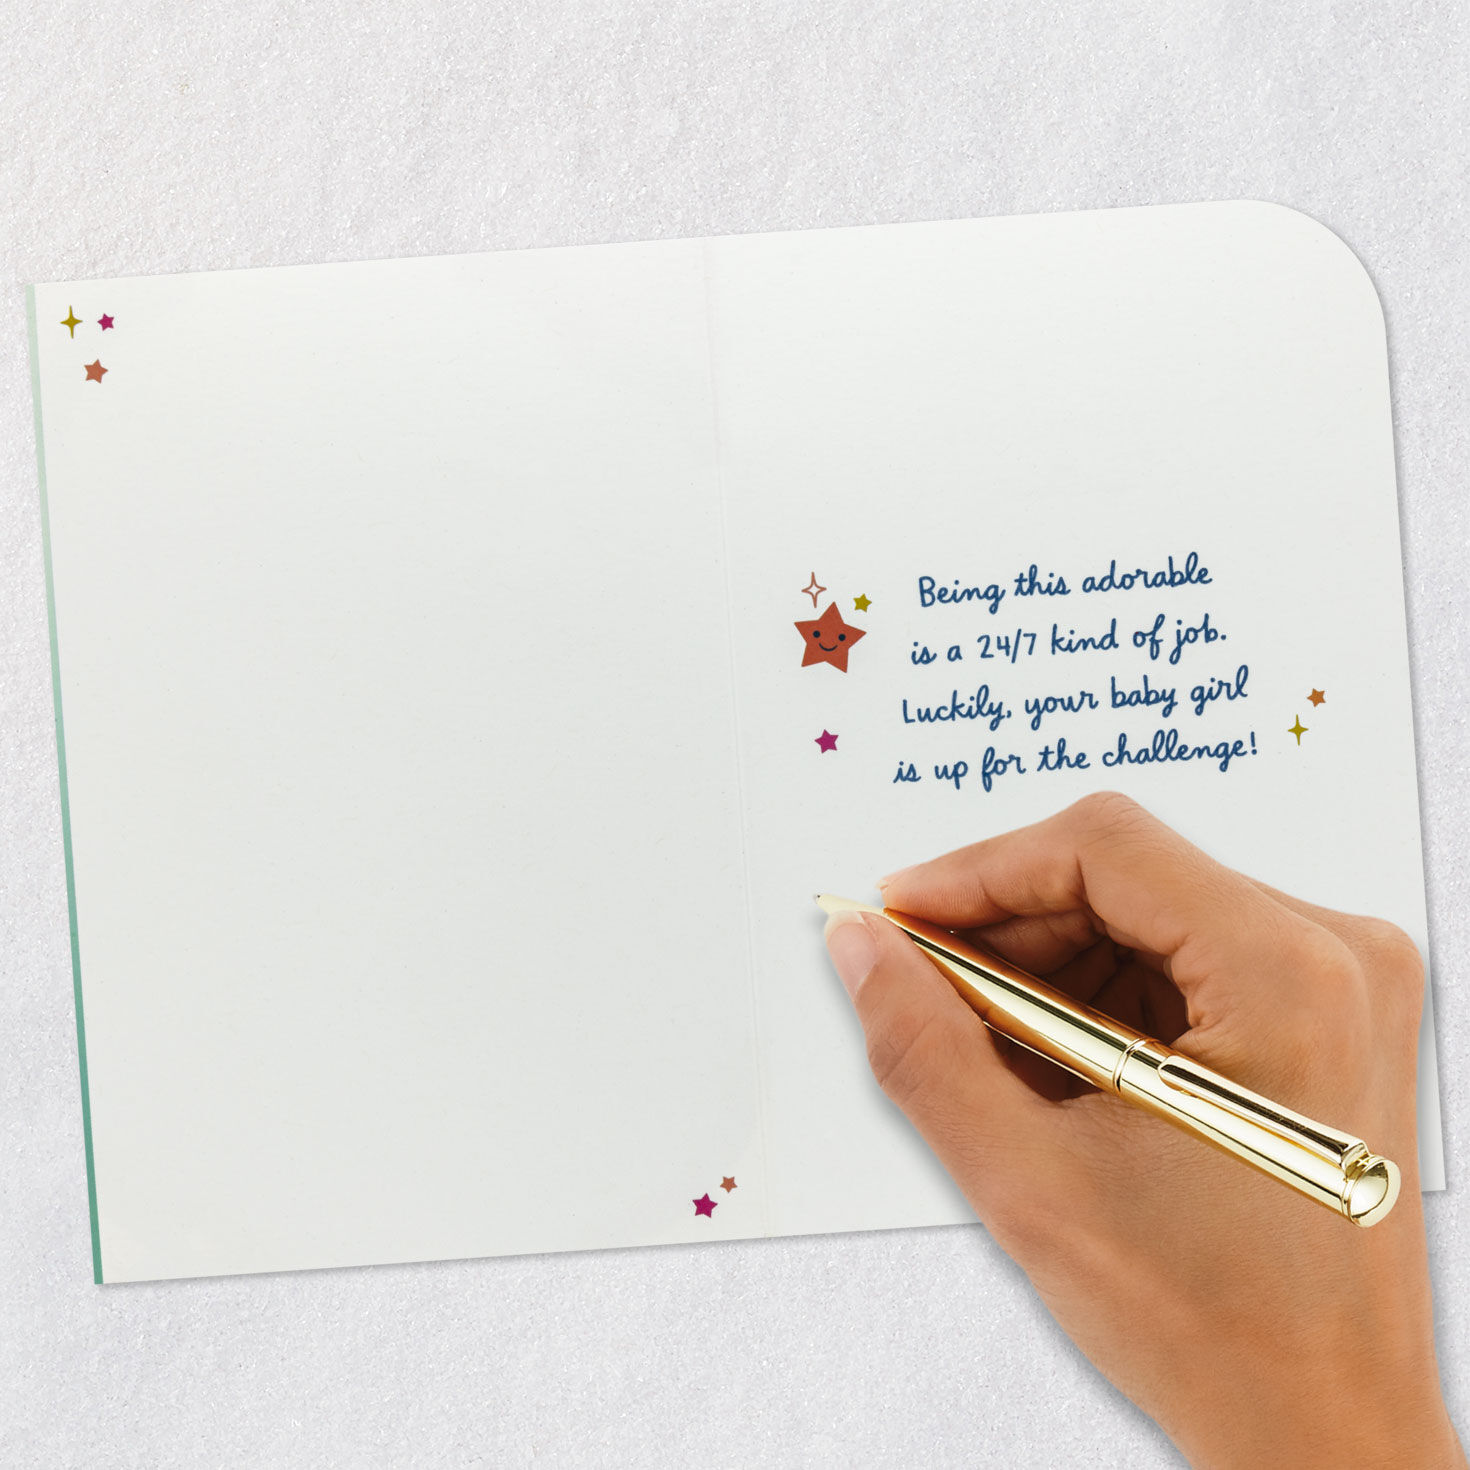 Being this adorable
is a 24/7 kind of job.
Luckily, your baby girl
is up for the challenge!